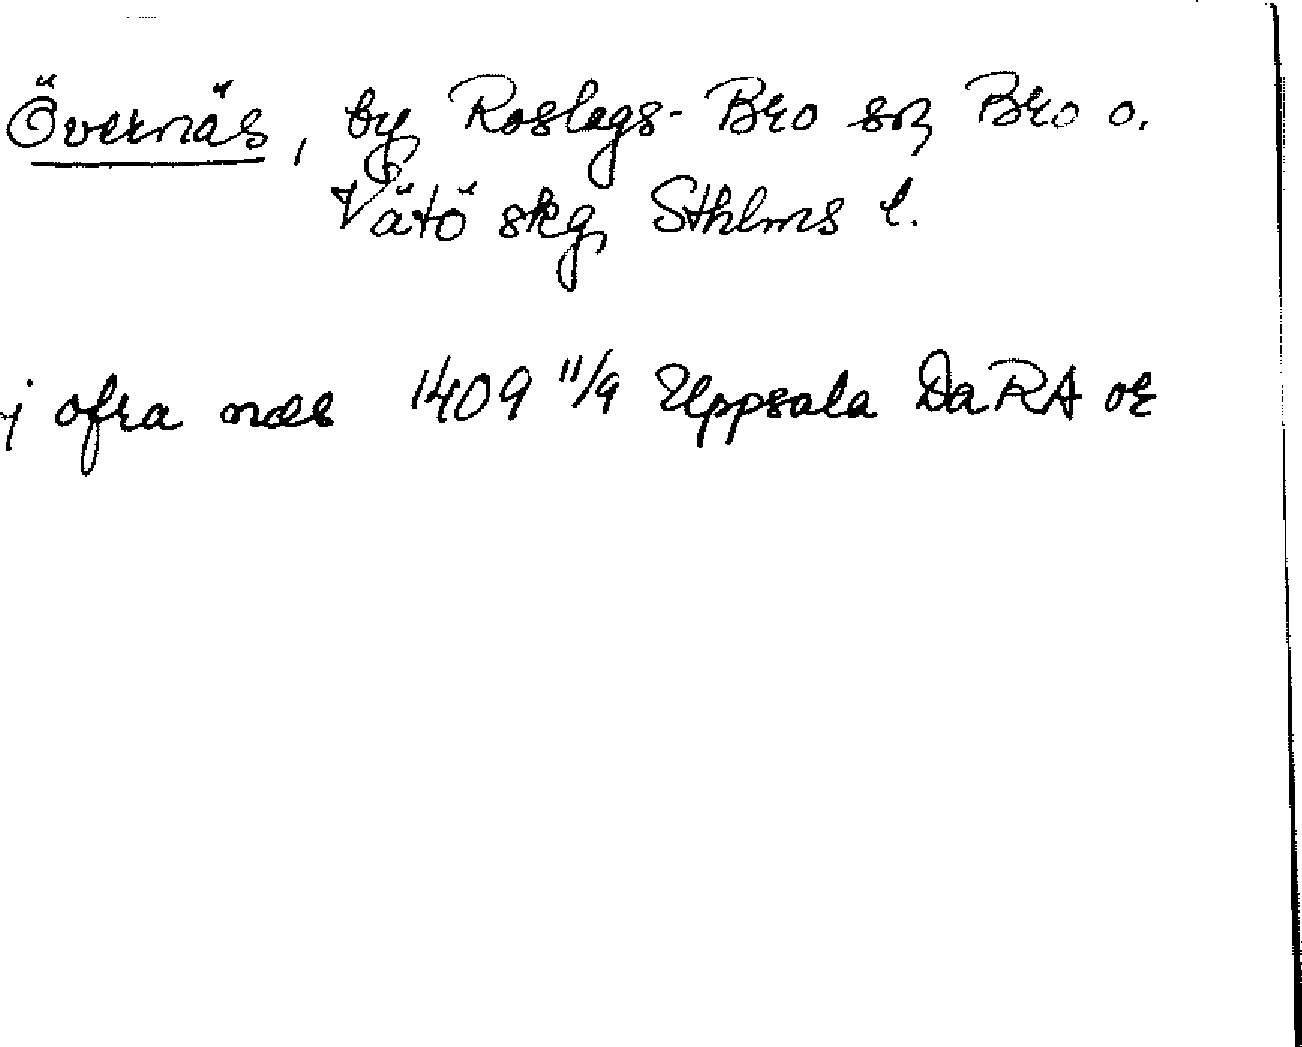 Övernäs, by, Roslags-Bro sn, Bro o.
Vätö skg, Sthlms l.
j ofra næs 1409 11/9 Uppsala DaRA or